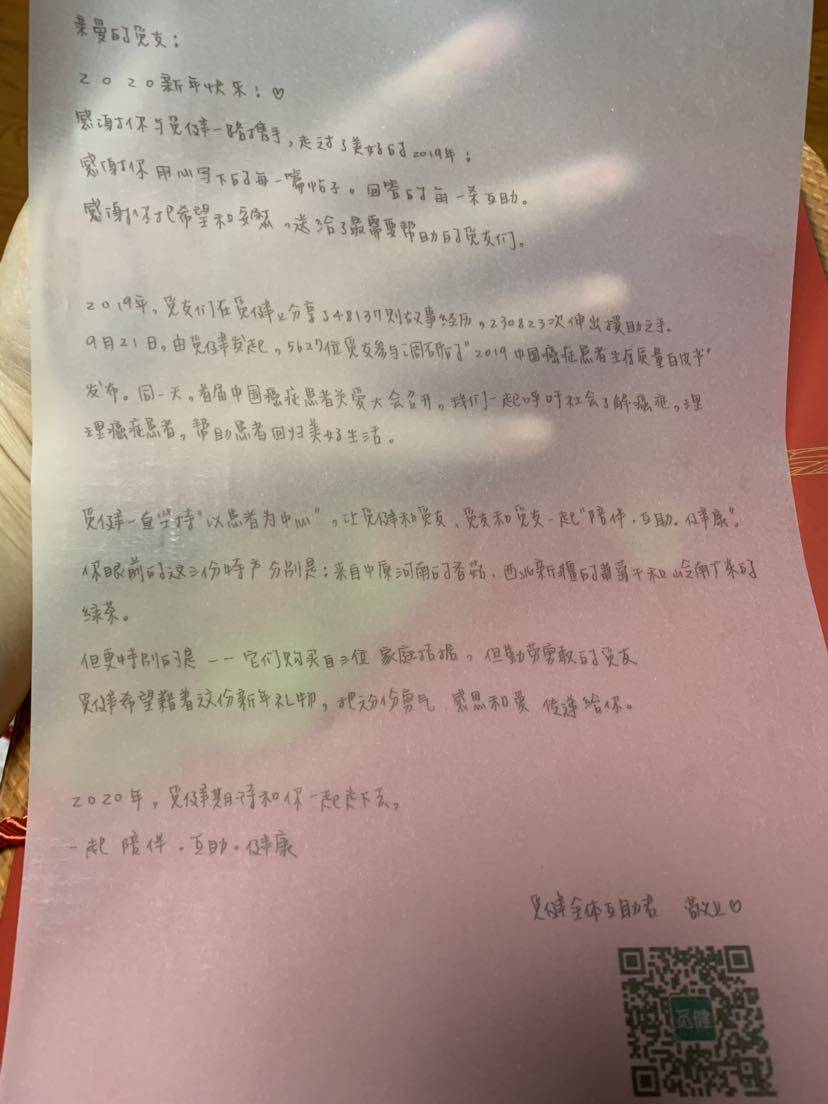 亲爱的觅友：
2020新年快乐！♡
感谢你与觅健一路携手，走过了美好的2019年；
感谢你用心写下的每一篇帖子，回答的每一条互助。
感谢你把希望和安慰，送给了最需要帮助的觅友们。
2019年，觅友们在觅健上分享了48137则故事经历，230823次伸出援助之手。
9月21日，由觅健发起，5627位觅友参与调研的"2019中国癌症患者生存质量白皮书"
发布。同一天，首届中国癌症患者关爱大会召开，我们一起呼吁社会了解癌症，理
理癌症患者，帮助患者回归美好生活。
觅健一直坚持"以患者为中心"，让觅健和觅友、觅友和觅友一起"陪伴·互助·健康"。
你眼前的这三份特产分别是：来自中原河南的香菇、西北新疆的葡萄干和岭南广东的
绿茶。
但更特别的是——它们购买自三位家庭拮据，但勤劳勇敢的觅友
觅健希望藉着这份新年礼物，把这份勇气、感恩和爱传递给你。
2020年，觅健期待和你一起走下去，
一起陪伴·互助·健康
觅健全体互助君 敬上♡
觅健